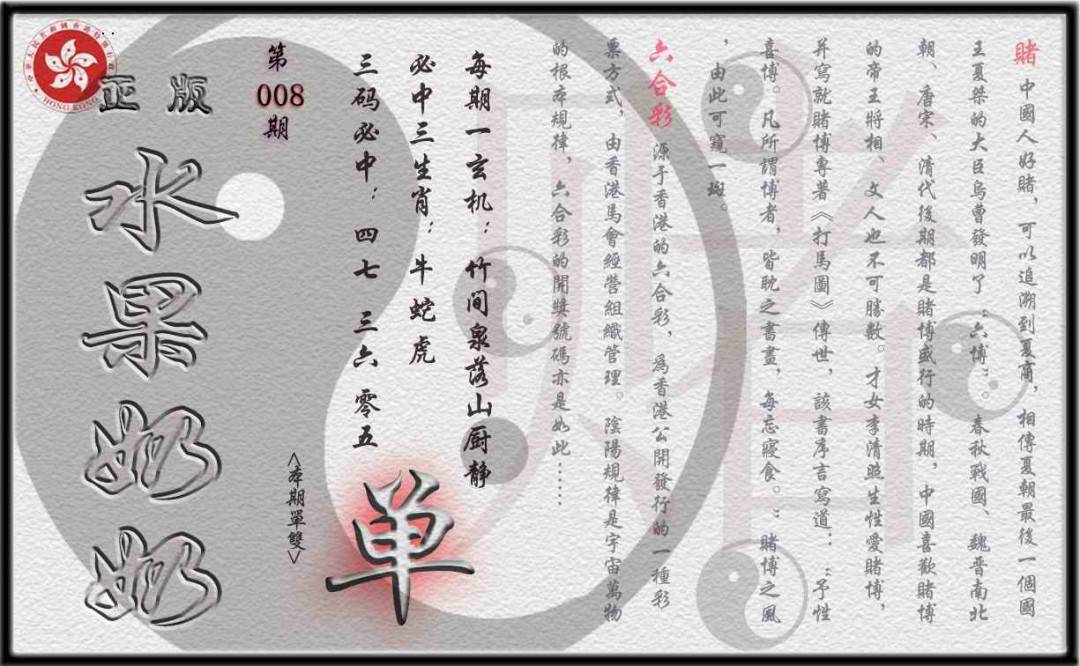 賭 中國人好賭，可以追溯到夏商，相傳夏朝最後一個國
王夏桀的大臣烏曹發明了“六博”。春秋戰國、魏晉南北
朝、唐宋、清代後期都是賭博盛行的時期，中國喜歡賭博
的帝王將相、文人也不可勝數。才女李清照生性愛賭博，
并寫就賭博專著《打馬圖》傳世，該書序言寫道：“予性
喜博。凡所謂博者，皆耽之書畫，每忘寢食。：賭博之風
，由此可窺一斑。
六合彩 源于香港的六合彩，為香港公開發行的一種彩
票方式，由香港馬會經營組織管理。陰陽規律是宇宙萬物
的根本規律，六合彩的開獎號碼亦是如此……
每期一玄机：竹间泉落山厨静
必中三生肖：牛蛇虎
三码必中：四七 三六 零五
单
<本期單雙>
第
008
期
正版
水果奶奶
HONG KONG